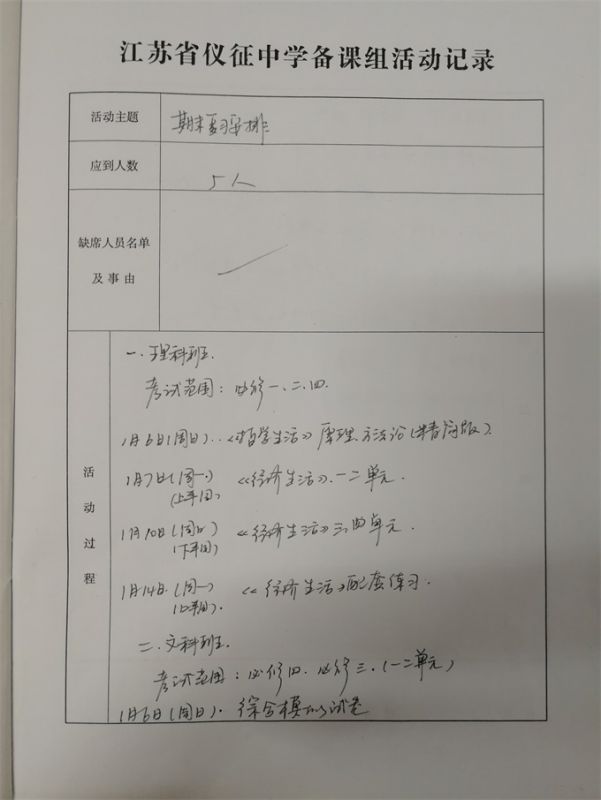 江苏省仪征中学备课组活动记录
活动主题
期末复习安排
应到人数
5人
缺席人员名单
及事由
活动过程
一、理科班.
考试范围：必修一、二、四.
1月6日(周日). 《哲学生活》原理方法论(简版).
1月7日(周一) 《经济生活》. 一二单元.
(上半周)
1月10日(周四) 《经济生活》三、四单元.
(下半周)
1月14日.(周一) 《经济生活》配套练习.
(上半周).
二、文科班.
考试范围：必修四. 必修三.(一二单元)
1月6日(周日). 综合模拟试卷